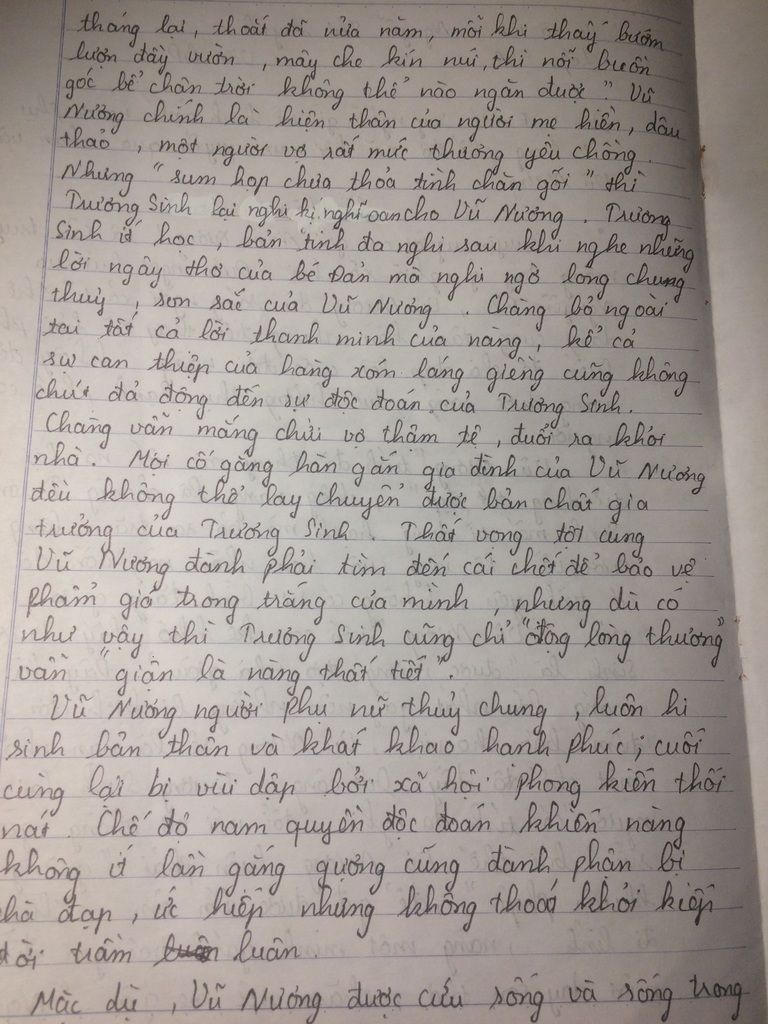 tháng lại, thoắt đã nửa năm, mỗi khi thấy bướm
lượn đầy vườn, mây che kín núi, thì nỗi buồn
góc bể chân trời không thể nào ngăn được" Vũ
Nương chính là hiện thân của người mẹ hiền, dâu
thảo, một người vợ rất mực thương yêu chồng.
Nhưng "sum họp chưa thỏa tình chăn gối" thì
Trương Sinh lại nghi kị nghĩ oan cho Vũ Nương. Trương
Sinh ít học, bản tính đa nghi sau khi nghe những
lời ngây thơ của bé Đản mà nghi ngờ lòng chung
thuỷ, son sắc của Vũ Nương. Chàng bỏ ngoài
tai tất cả lời thanh minh của nàng, kể cả
sự can thiệp của hàng xóm láng giềng cũng không
chút đả động đến sự độc đoán của Trương Sinh.
Chàng vẫn mắng chửi vợ thậm tệ, đuổi ra khỏi
nhà. Mọi cố gắng hàn gắn gia đình của Vũ Nương
đều không thể lay chuyển được bản chất gia
trưởng của Trương Sinh. Thất vọng tột cùng
Vũ Nương đành phải tìm đến cái chết để bảo vệ
phẩm giá trong trắng của mình, nhưng dù có
như vậy thì Trương Sinh cũng chỉ "động lòng thương"
vẫn "giận là nàng thất tiết".
Vũ Nương người phụ nữ thuỷ chung, luôn hi
sinh bản thân và khát khao hạnh phúc; cuối
cùng lại bị vùi dập bởi xã hội phong kiến thối
nát. Chế độ nam quyền độc đoán khiến nàng
không ít lần gắng gượng cũng đành phận bị
chà đạp, ức hiếp nhưng không thoát khỏi kiếp
đời trầm luân.
Mặc dù, Vũ Nương được cứu sống và sống trong